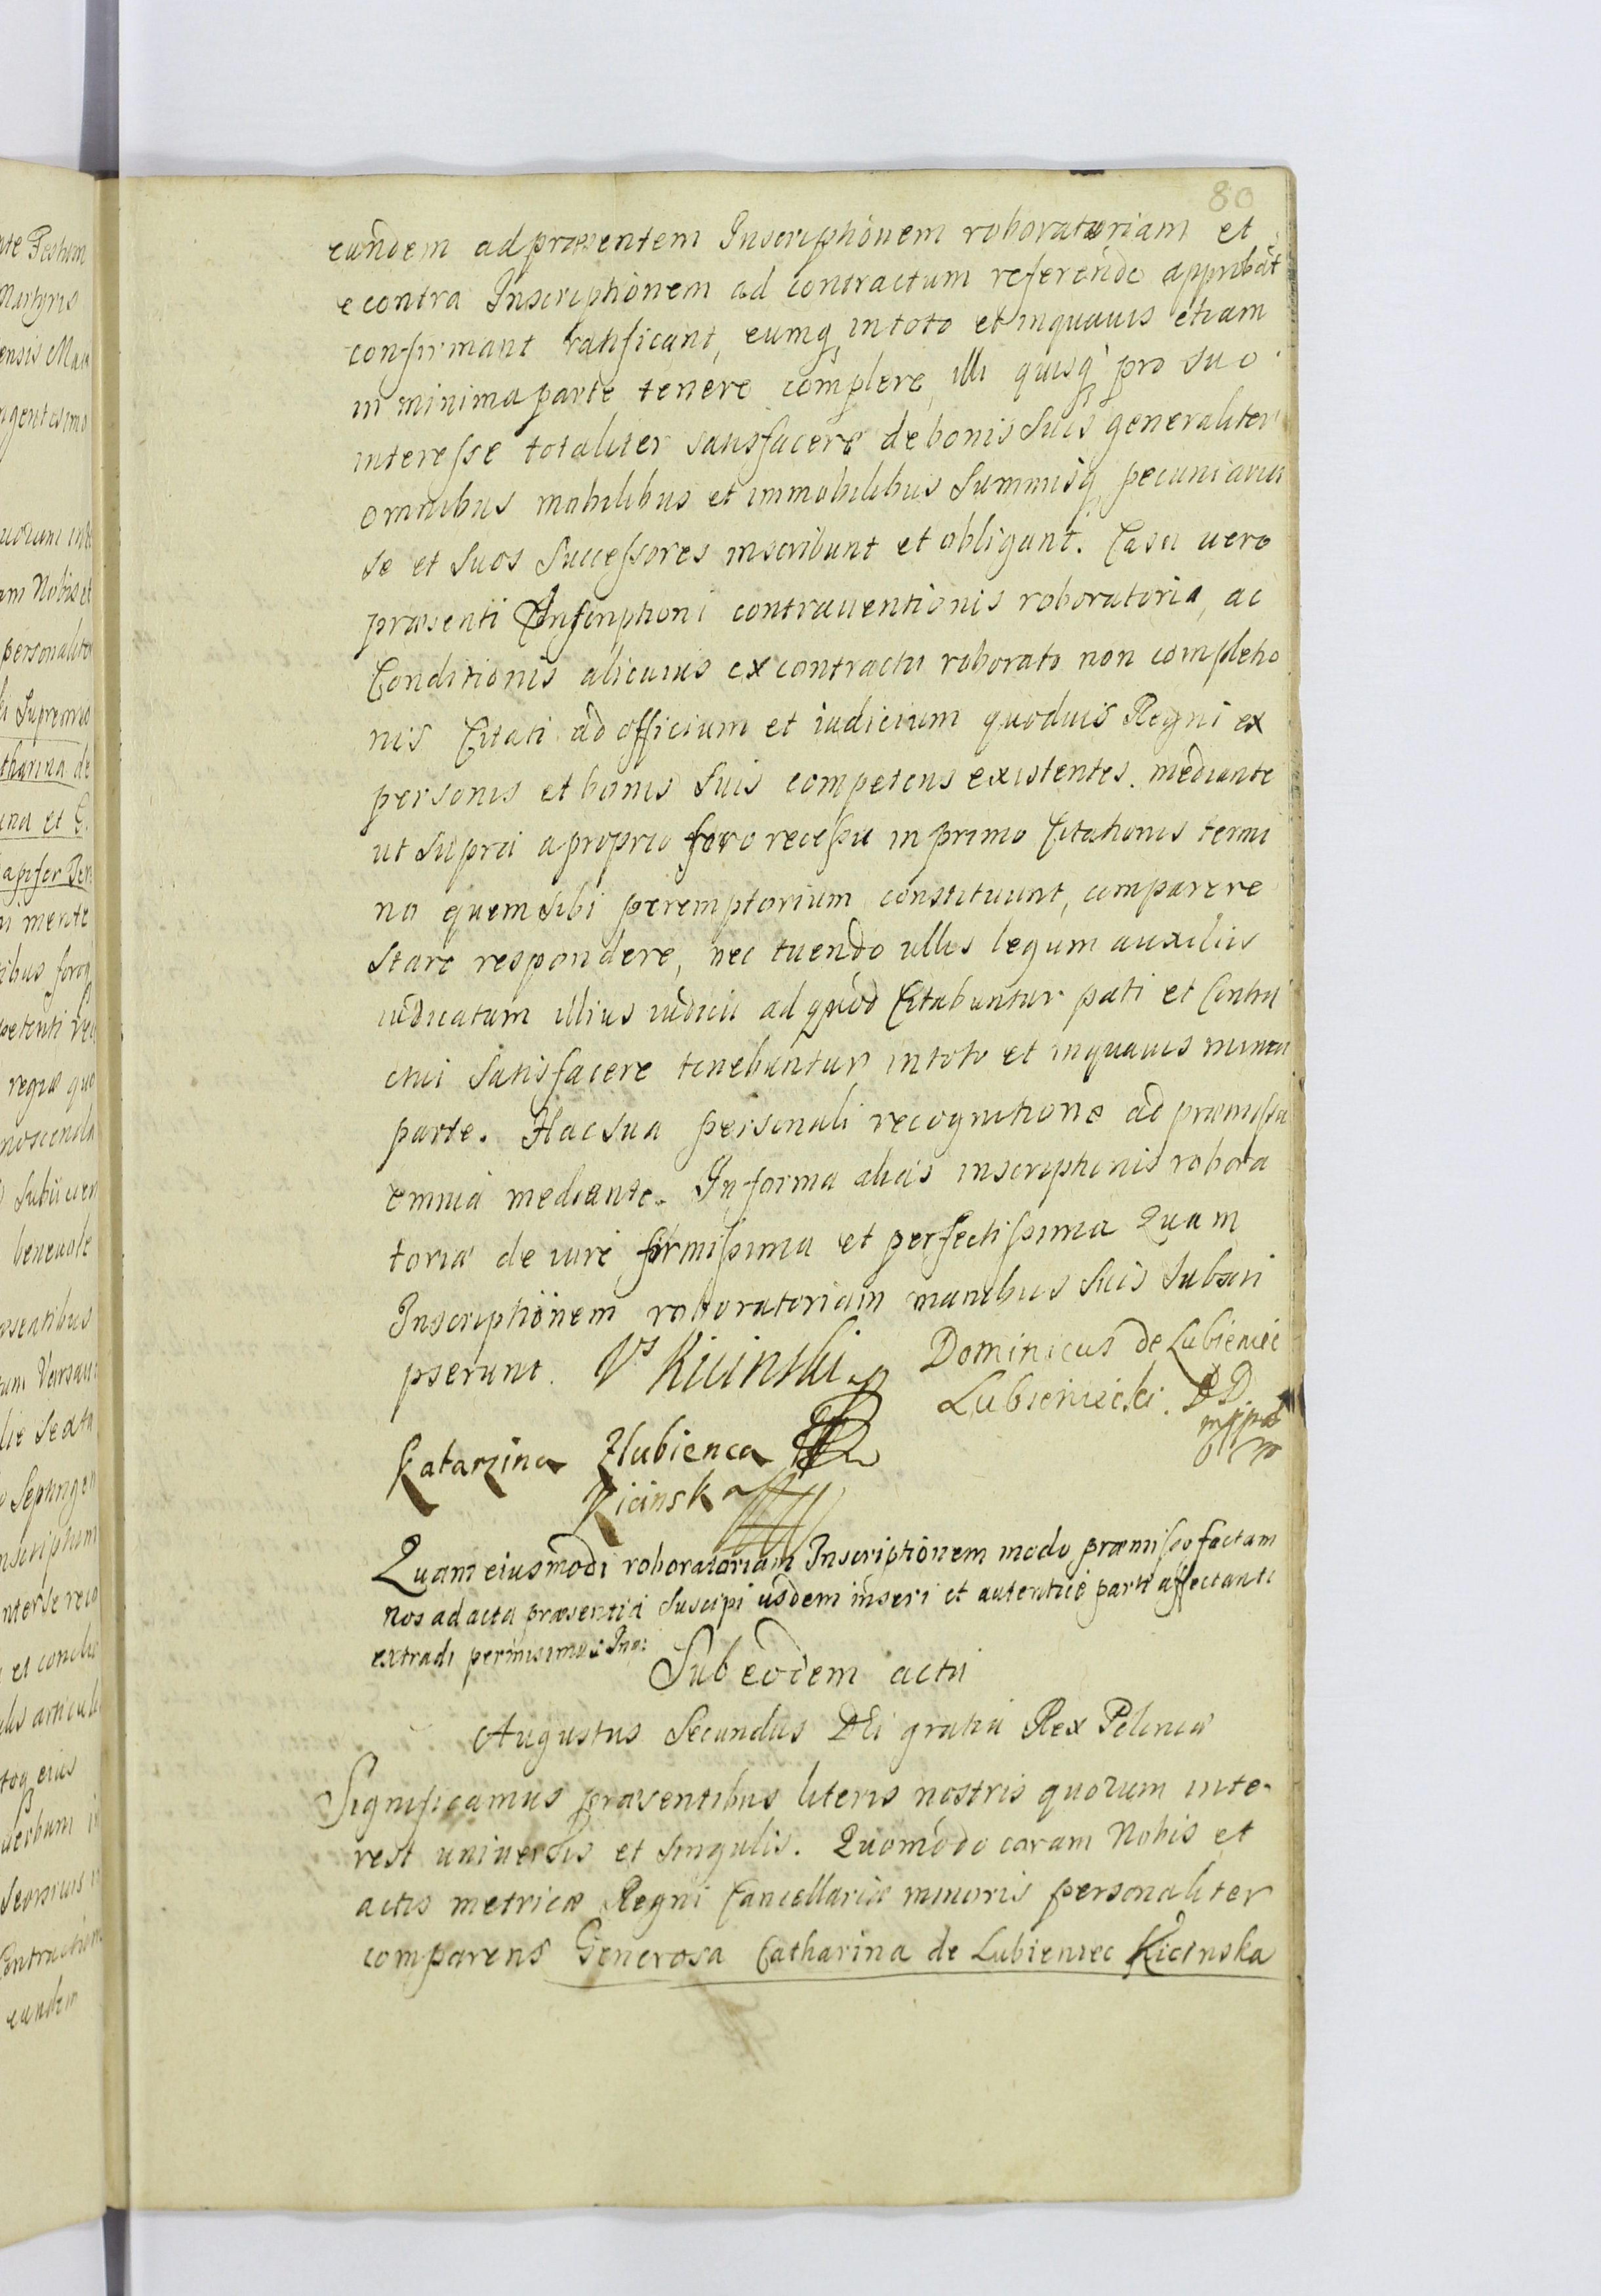 80
eundem ad præsentem Inscriptionem roboratoriam et
e contra Inscriptionem ad contractum referendo approbāt
confirmant ratificant, eumq in toto et inquauis etiam
in minima parte tenere complere, illi quisq pro suo
interesse totaliter satisfacere de bonis suis generaliter
omnibus mobilibus et immobilibus Summisq pecuniariis
se et suos Successores inscribunt et obligant. Casu uero
præsenti Inscriptioni contrauentionis roboratoria, ac
Conditionis alicuius ex contractu roborato non completio
nis Citati ad officium et iudicium quoduis Regni ex
personis et bonis suis competens existentes. mediante
ut supra a proprio foro recessu in primo Citationis termi
no quem sibi peremptorium constituunt, comparere
stare respondere, nec tuendo ullis legum auxiliis
iudicatum illius iudicii ad quod Citabuntur pati et Contra
ctui satisfacere tenebuntur in toto et inquauis minima
parte. Hac sua personali recognitione ad præmissa
omnia mediante. In forma alias inscriptionis robora
toriæ de iure firmissima et perfectissima Quam
Inscriptionem roboratoriam manibus suis subscri
pserunt. Kicinski
Dominicus de Lubieniec
Lubieniecki.
Katarzina Zlubienca
Kicinska
Quam eiusmodi roboratoriam Inscriptionem modo præmisso factam
nos ad acta præsentia suscipi iisdem inseri et autenticè parti affectanti
extradi permisimus
Sub eodem actu
Augustus Secundus DEi gratia Rex Poloniæ
Significamus præsentibus literis nostris quorum inte-
rest uniuersis et singulis. Quomodo coram Nobis et
actis metricæ Regni Cancellariæ minoris personaliter
comparens Generosa Catharina de Lubieniec Kicinska